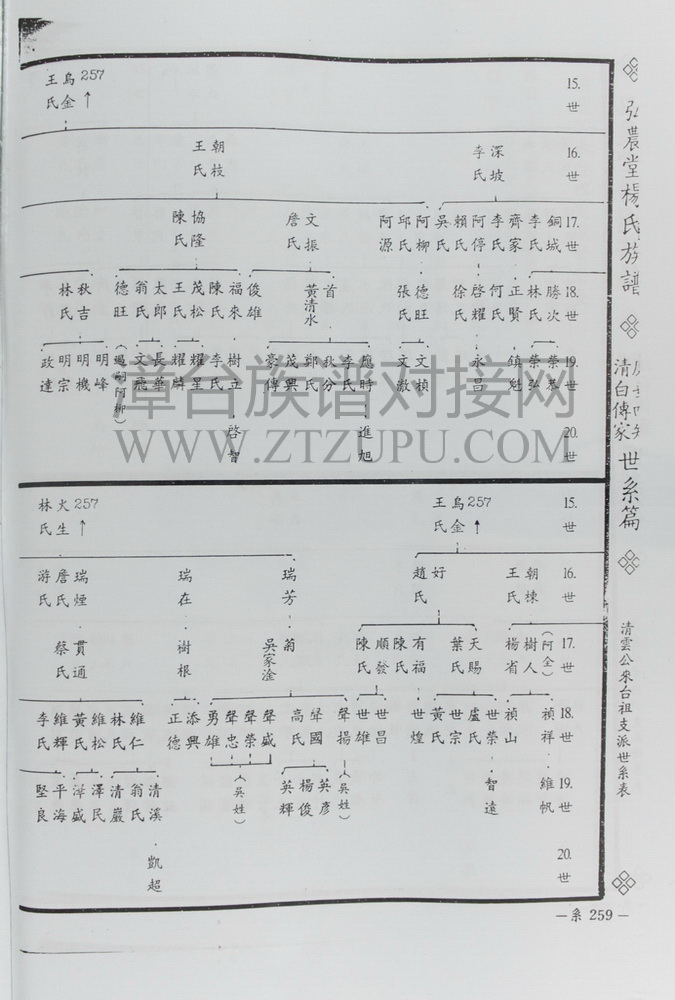 弘農堂楊氏族譜
清白傳家
世系篇
清雲公來台祖支派世系表
15.世
烏金 257↑
王氏
16.世
深坡 李氏
朝枝 王氏
17.世
銅城 李氏 齊家 李氏 阿停 賴氏 吳氏 阿柳 邱氏 阿源
文振 詹氏
協隆 陳氏
18.世
勝次 林氏 正賢 何氏 啓耀 徐氏
德旺 張氏
首 黃清水
俊雄 福來 陳氏 茂松 王氏 太郎 翁氏 德旺
秋吉 林氏
19.世
榮弘 鎮魁 永昌
文楨
應時 李氏 秋分 鄭氏 茂興 豪傳
樹立 李氏 耀星 耀麟 長華 文飛
明峰 明機 明宗 政達
20.世
進旭
啓智
15.世
烏金 257↑
王氏
火生 257↑
林氏
16.世
朝棟 王氏
好 趙氏
瑞芳
瑞在
瑞煙 詹氏 游氏
17.世
(阿全) 樹人 楊省
天賜 葉氏 有福 陳氏 順發 陳氏
翁 吳家淦
樹根
貫通 蔡氏
18.世
禎祥 禎山
世榮 盧氏 世宗 黃氏 世煌
世昌 世雄
聲揚 聲國 高氏 聲盛 聲榮 聲忠 勇雄
添興 正德
維仁 林氏 維松 黃氏 維輝 李氏
19.世
維帆
智遠
(吳姓)
英彥 楊俊 英輝
(吳姓)
清溪 翁氏 清巖 澤民 澤盛 平海 堅良
20.世
凱超
—系 259—
章台族谱对接网
WWW.ZTZUPU.COM